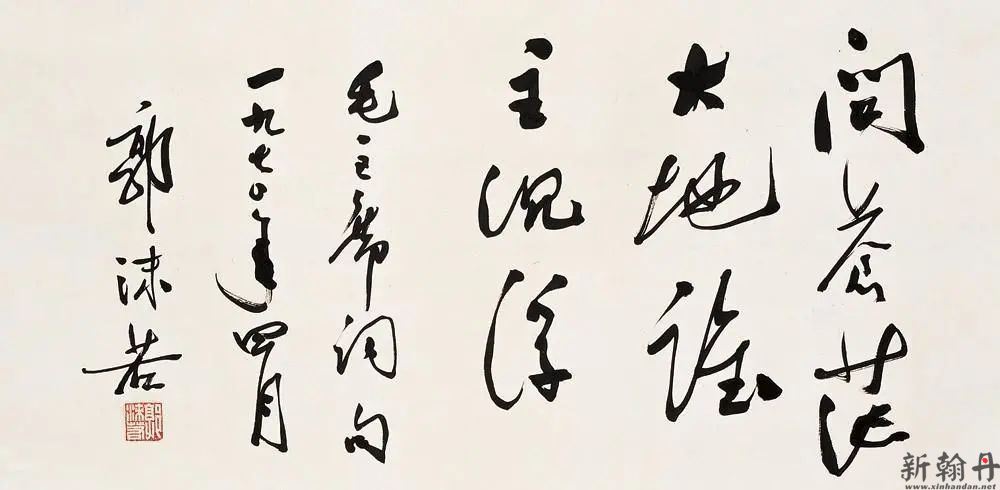 问苍茫
大地谁
主沉浮
毛主席词句
一九七〇年四月
郭沫若
郭沫若
新翰丹
www.xinhandan.net